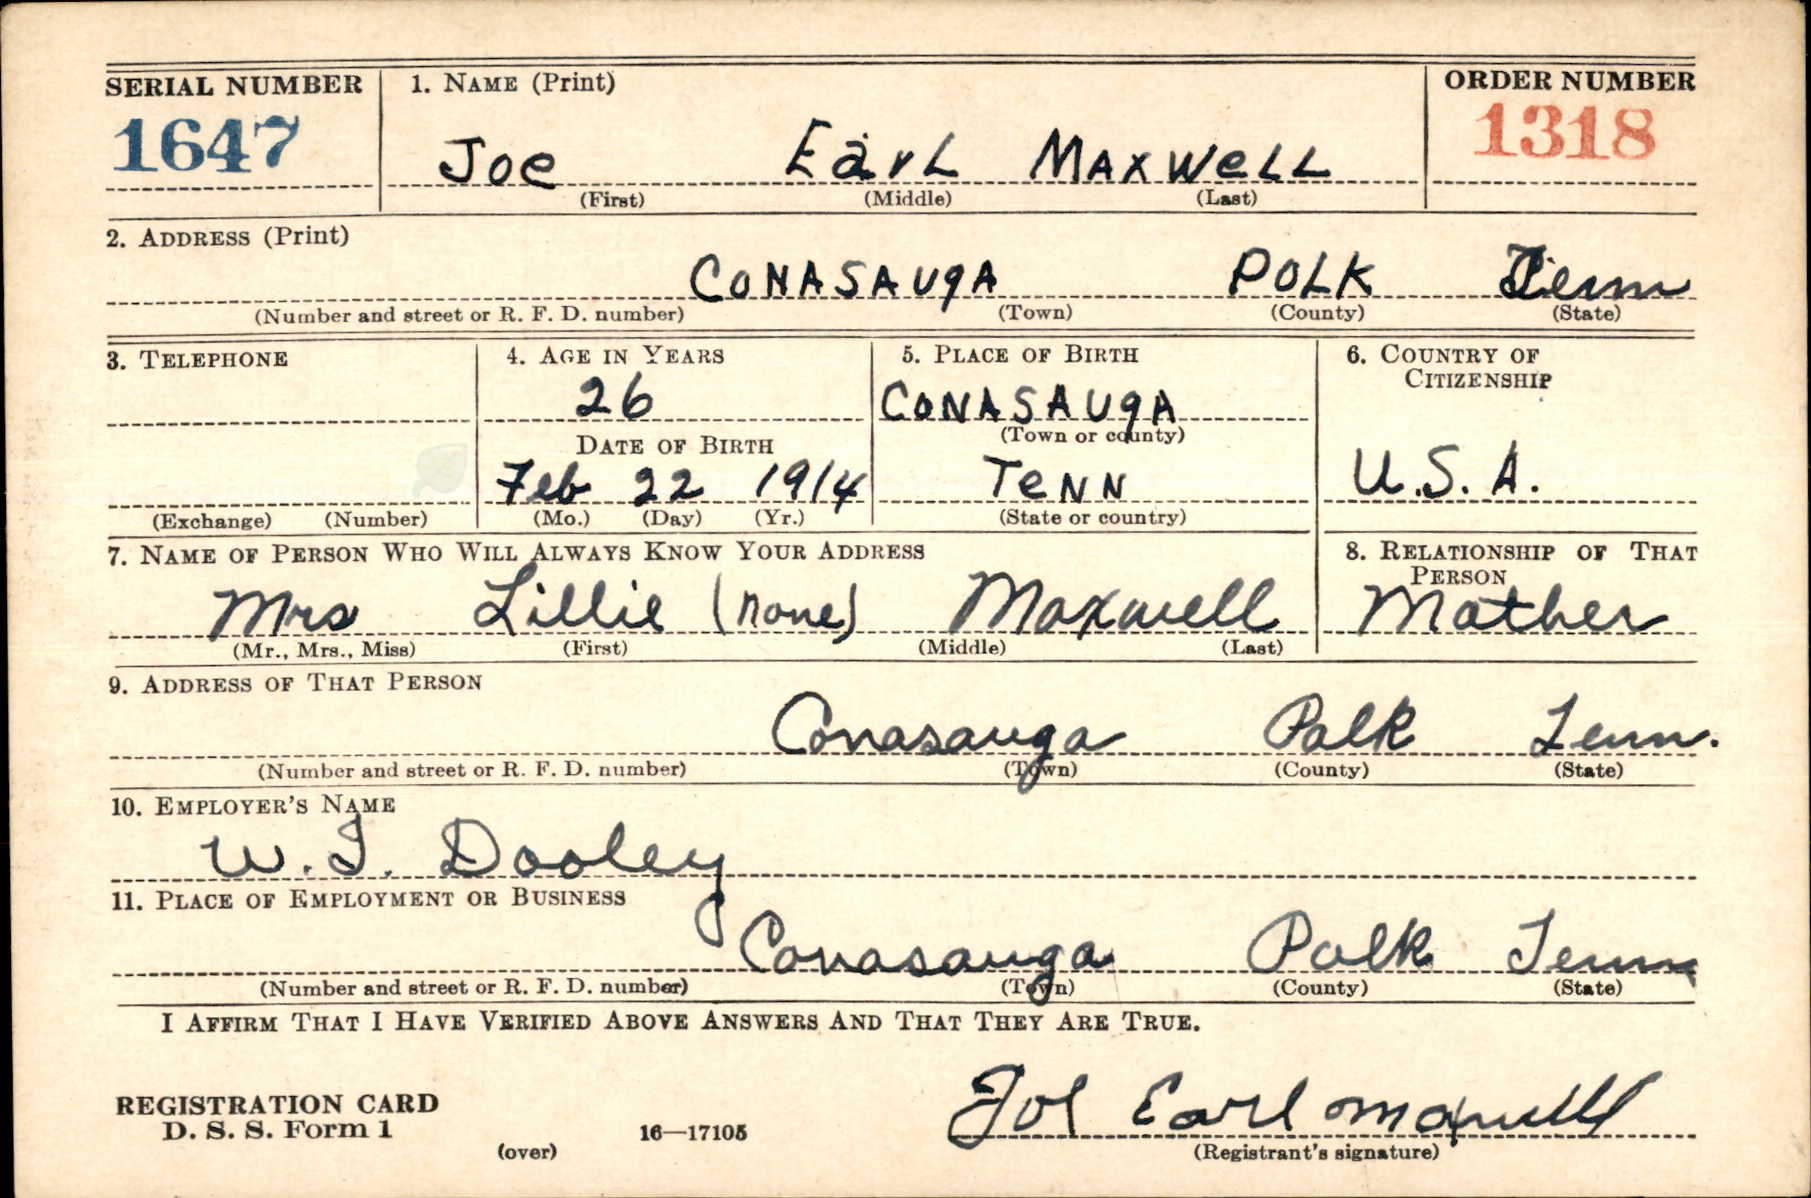 SERIAL NUMBER 1. NAME (Print) ORDER NUMBER
1647 Joe Earl Maxwell 1318
(First) (Middle) (Last)
2. ADDRESS (Print)
CONASAUgA POLK Tenn
(Number and street or R. F. D. number) (Town) (County) (State)
3. TELEPHONE 4. AGE IN YEARS 5. PLACE OF BIRTH 6. COUNTRY OF CITIZENSHIP
26 CONASAUgA
DATE OF BIRTH (Town or county)
Feb 22 1914 TeNN U.S.A.
(Exchange) (Number) (Mo.) (Day) (Yr.) (State or country)
7. NAME OF PERSON WHO WILL ALWAYS KNOW YOUR ADDRESS 8. RELATIONSHIP OF THAT PERSON
Mrs Lillie (none) Maxwell Mother
(Mr., Mrs., Miss) (First) (Middle) (Last)
9. ADDRESS OF THAT PERSON
Conasauga Polk Tenn.
(Number and street or R. F. D. number) (Town) (County) (State)
10. EMPLOYER'S NAME
W. T. Dooley
11. PLACE OF EMPLOYMENT OR BUSINESS
Conasauga Polk Tenn
(Number and street or R. F. D. number) (Town) (County) (State)
I AFFIRM THAT I HAVE VERIFIED ABOVE ANSWERS AND THAT THEY ARE TRUE.
Joe Earl Maxwell
REGISTRATION CARD
D. S. S. Form 1 (over) 16—17105 (Registrant's signature)